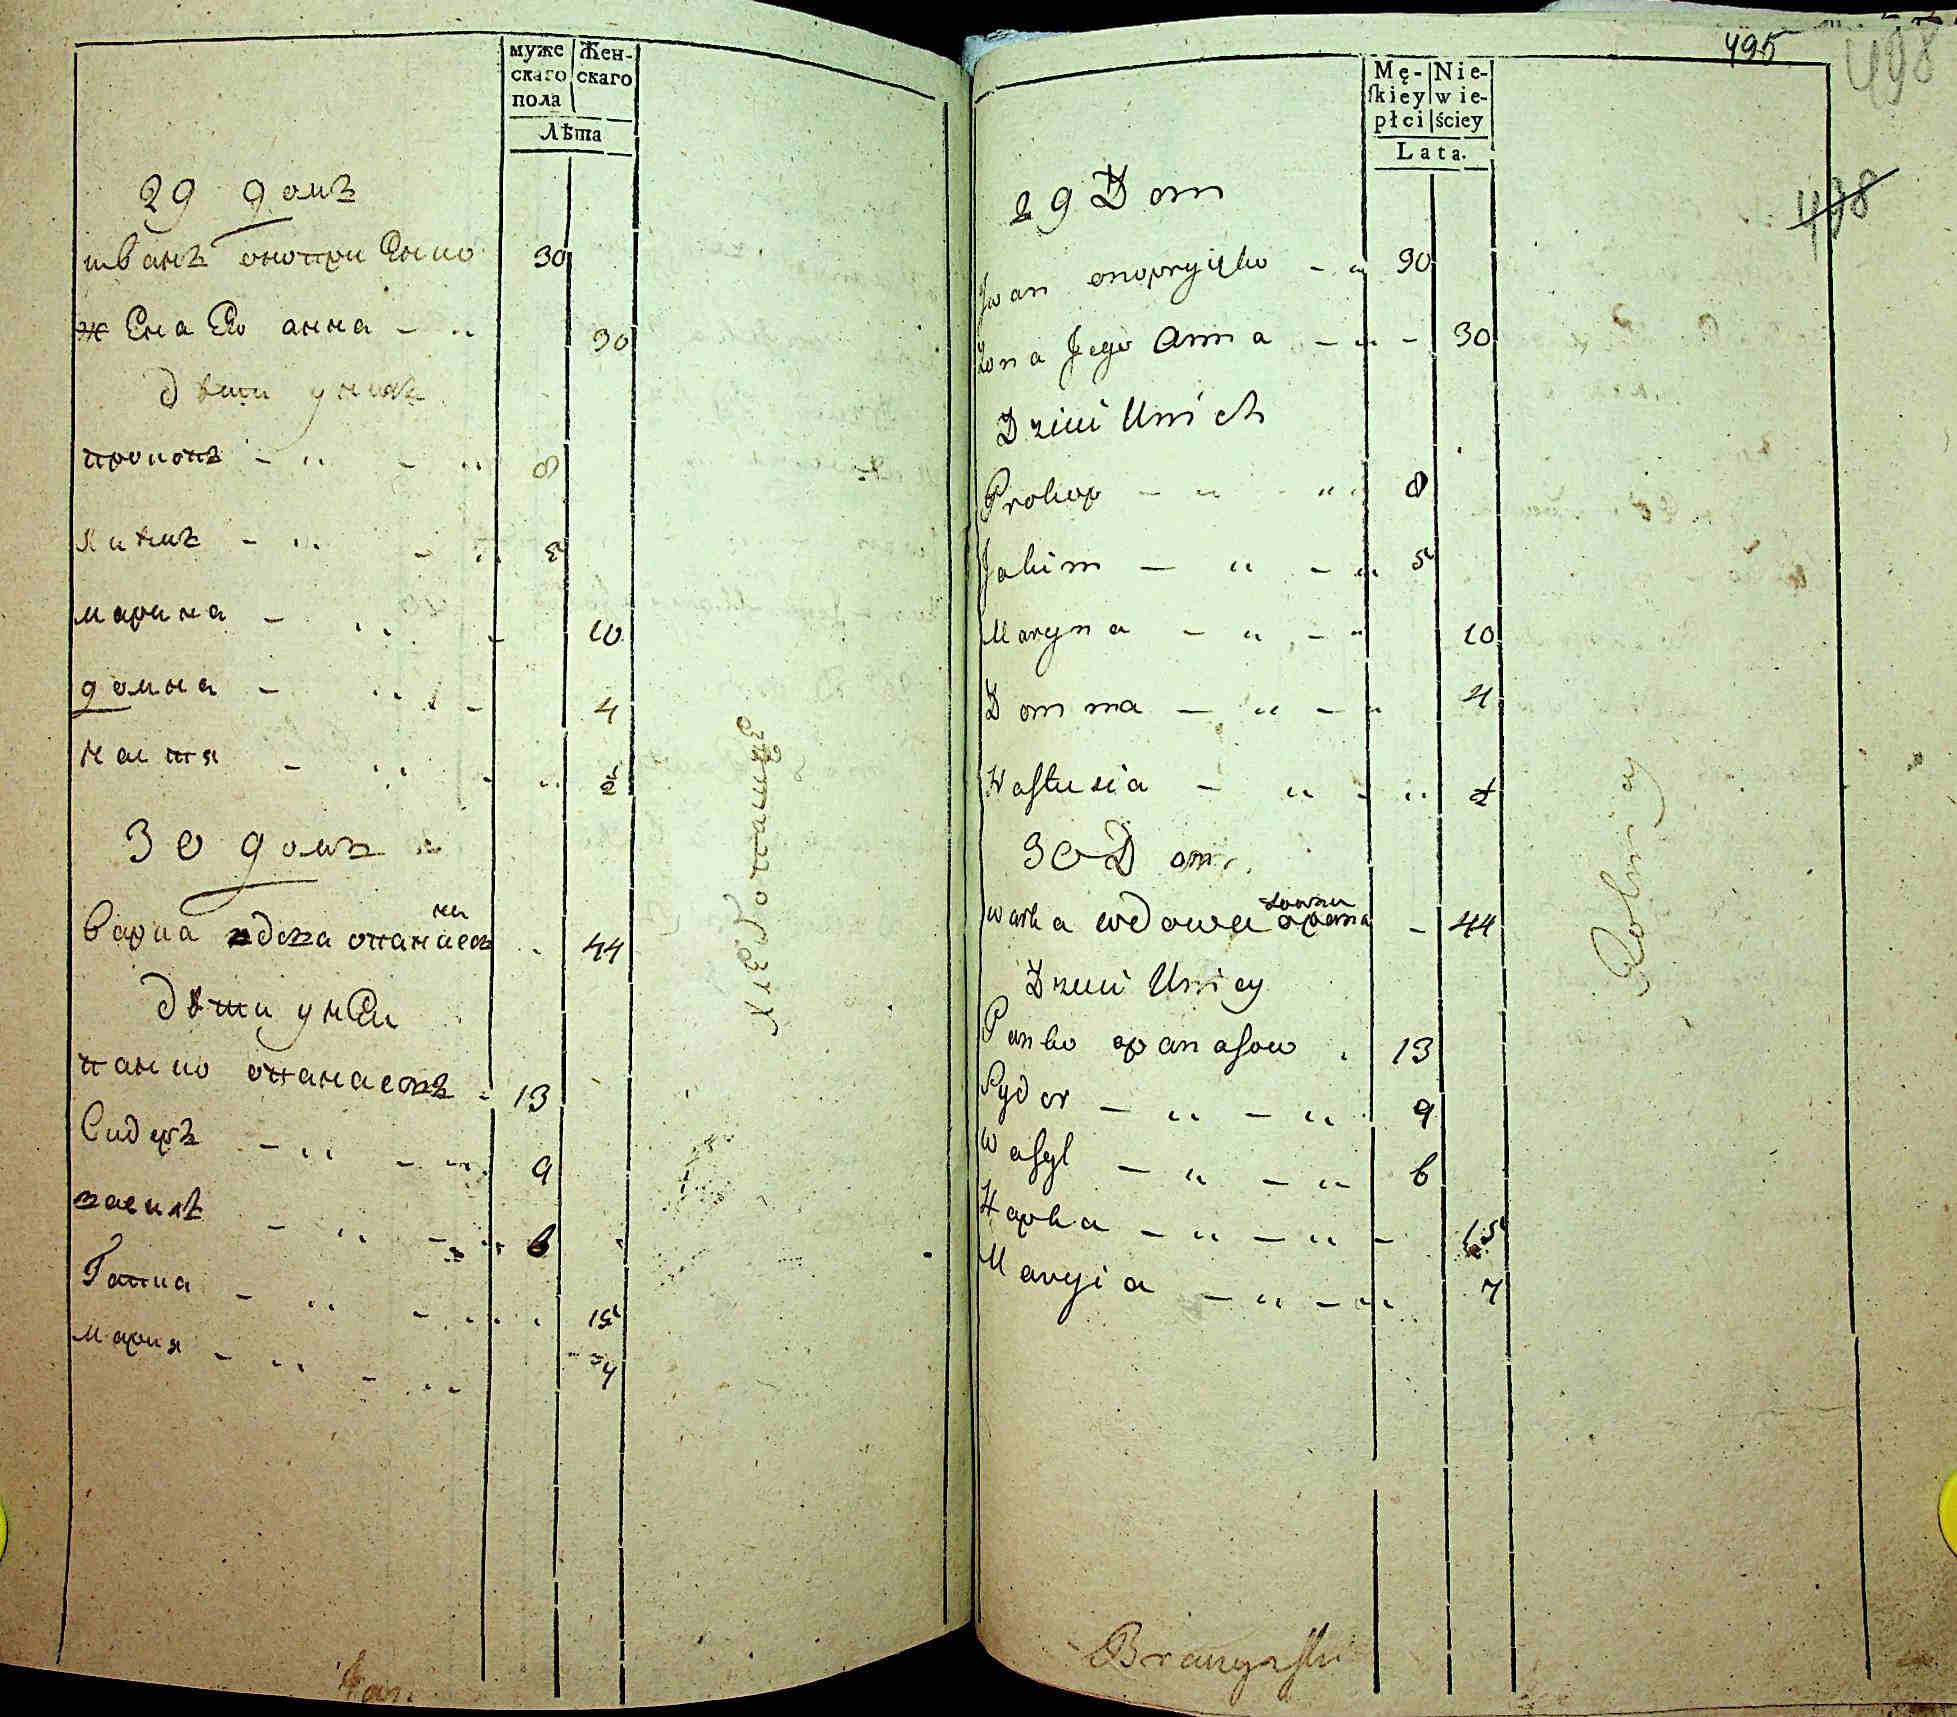 муже скаго пола
Жен- скаго
Лѣта
29 домъ
иванъ оноприенко 30
жена Его анна - " 30
дѣти унихъ
прокопъ - " - " 8
якимъ - " - " 5
марина - " - 10
домна - " - 4
настя - " - " ½
30 домъ
варка вдова опанасова 44
дѣти унеи
панко опанасовъ 13
Сидоръ - " - " 9
василь - " - " 6
Гапка - " - " 15
мария - " - " 7
хлѣбопашцѣ
495
498
498
Mę- ſkiey płci
Nie- wie- ściey
Lata.
29 Dom
Jwan onopryięko - " 30
Żona Jego Anna - " - 30
Dzieci Unich
Prokop - " - " 8
Jakim - " - " 5
Maryna - " - " 10
Domna - " - " 4
Naſtusia - " - " ½
30 Dom
warka wdowa - 44
Dzieci Uniey
Panko opanaſow 13
Sydor - " - " 9
waſyl - " - " 6
Hapka - " - " - 15
Maryia - " - " 7
Rolnicy